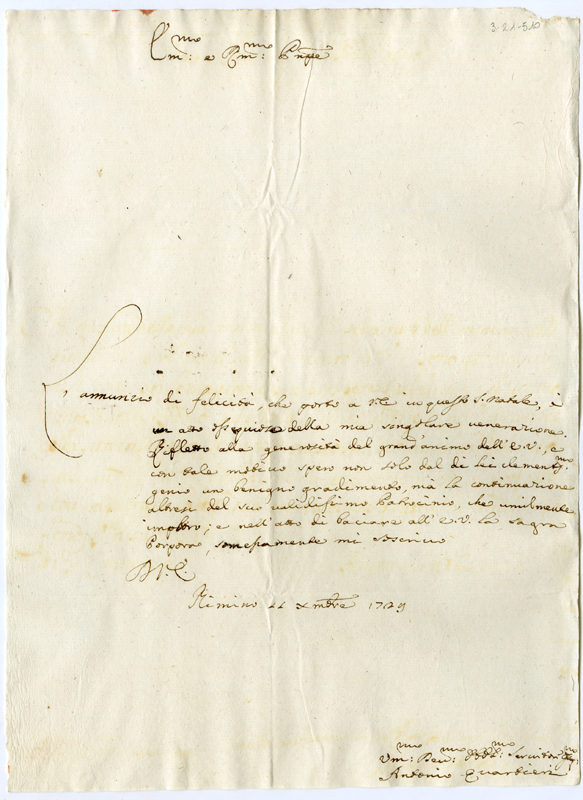 3-21-510
Em:mo e Rm:mo Pnpe
L'annuncio di felicità, che porto a V.E. in questo S. Natale, è
un atto ossequioso della mia singolare venerazione.
Rifletto alla generosità del grand'animo dell'E.V., e
con tale motivo spero non solo dal di lei clementmo
genio un benigno gradimento, mà la continuazione
altresì del suo validissimo Patrocinio, che umilmente
imploro; e nell'atto di baciare all'E.V. la sagra
Porpora, somessamente mi soscrivo
D.V.E.
Rimino 22 Xmbre 1729
Um:mo Dev:mo Obbl:mo Servitor
Antonio Quartieri